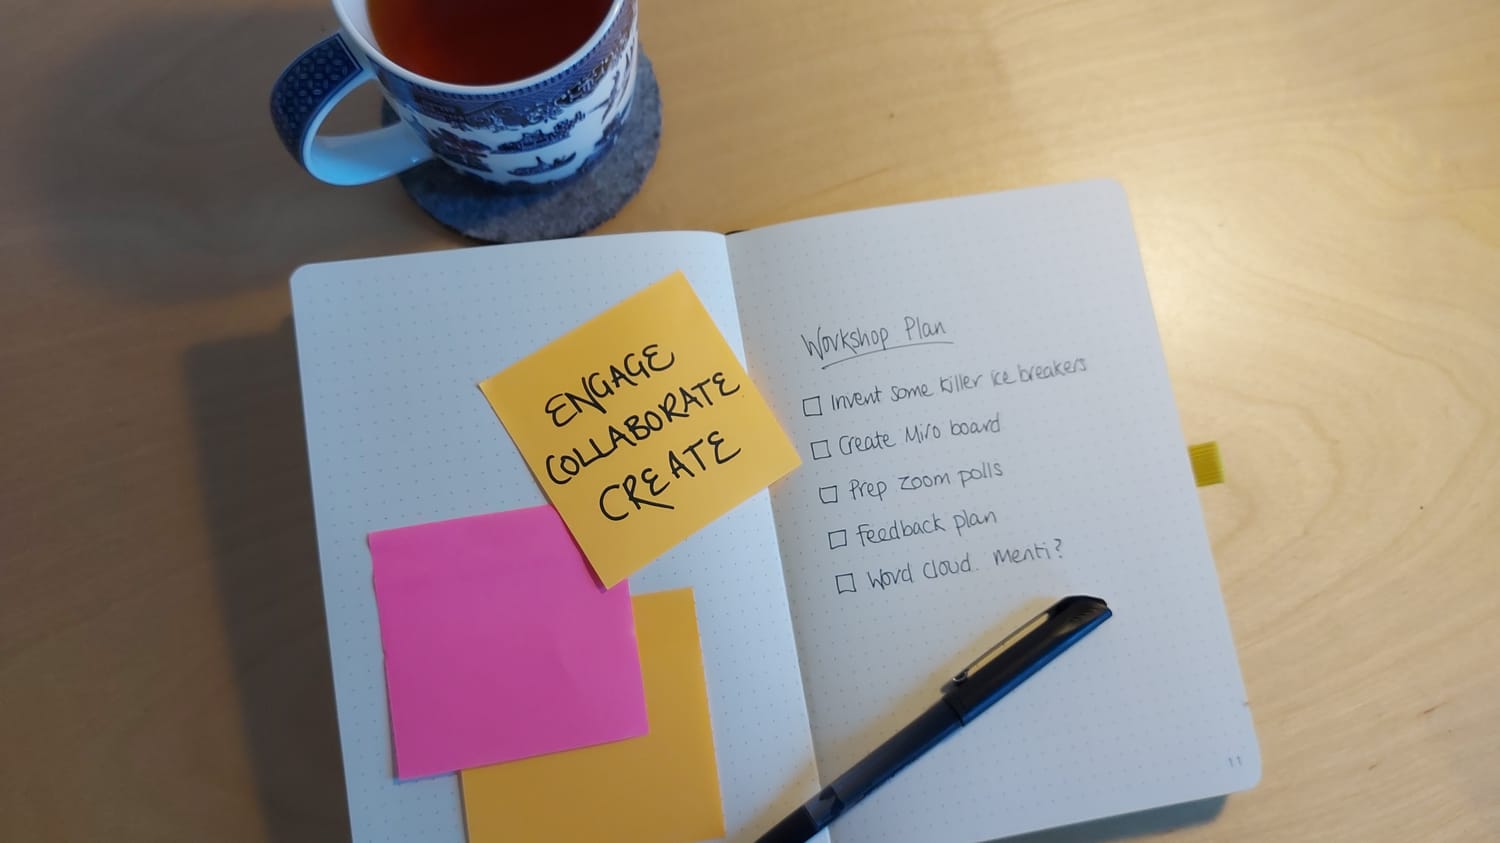 ENGAGE
COLLABORATE
CREATE
Workshop Plan
Invent some killer ice breakers
Create Miro board
Prep zoom polls
Feedback plan
Word cloud. Menti?
11